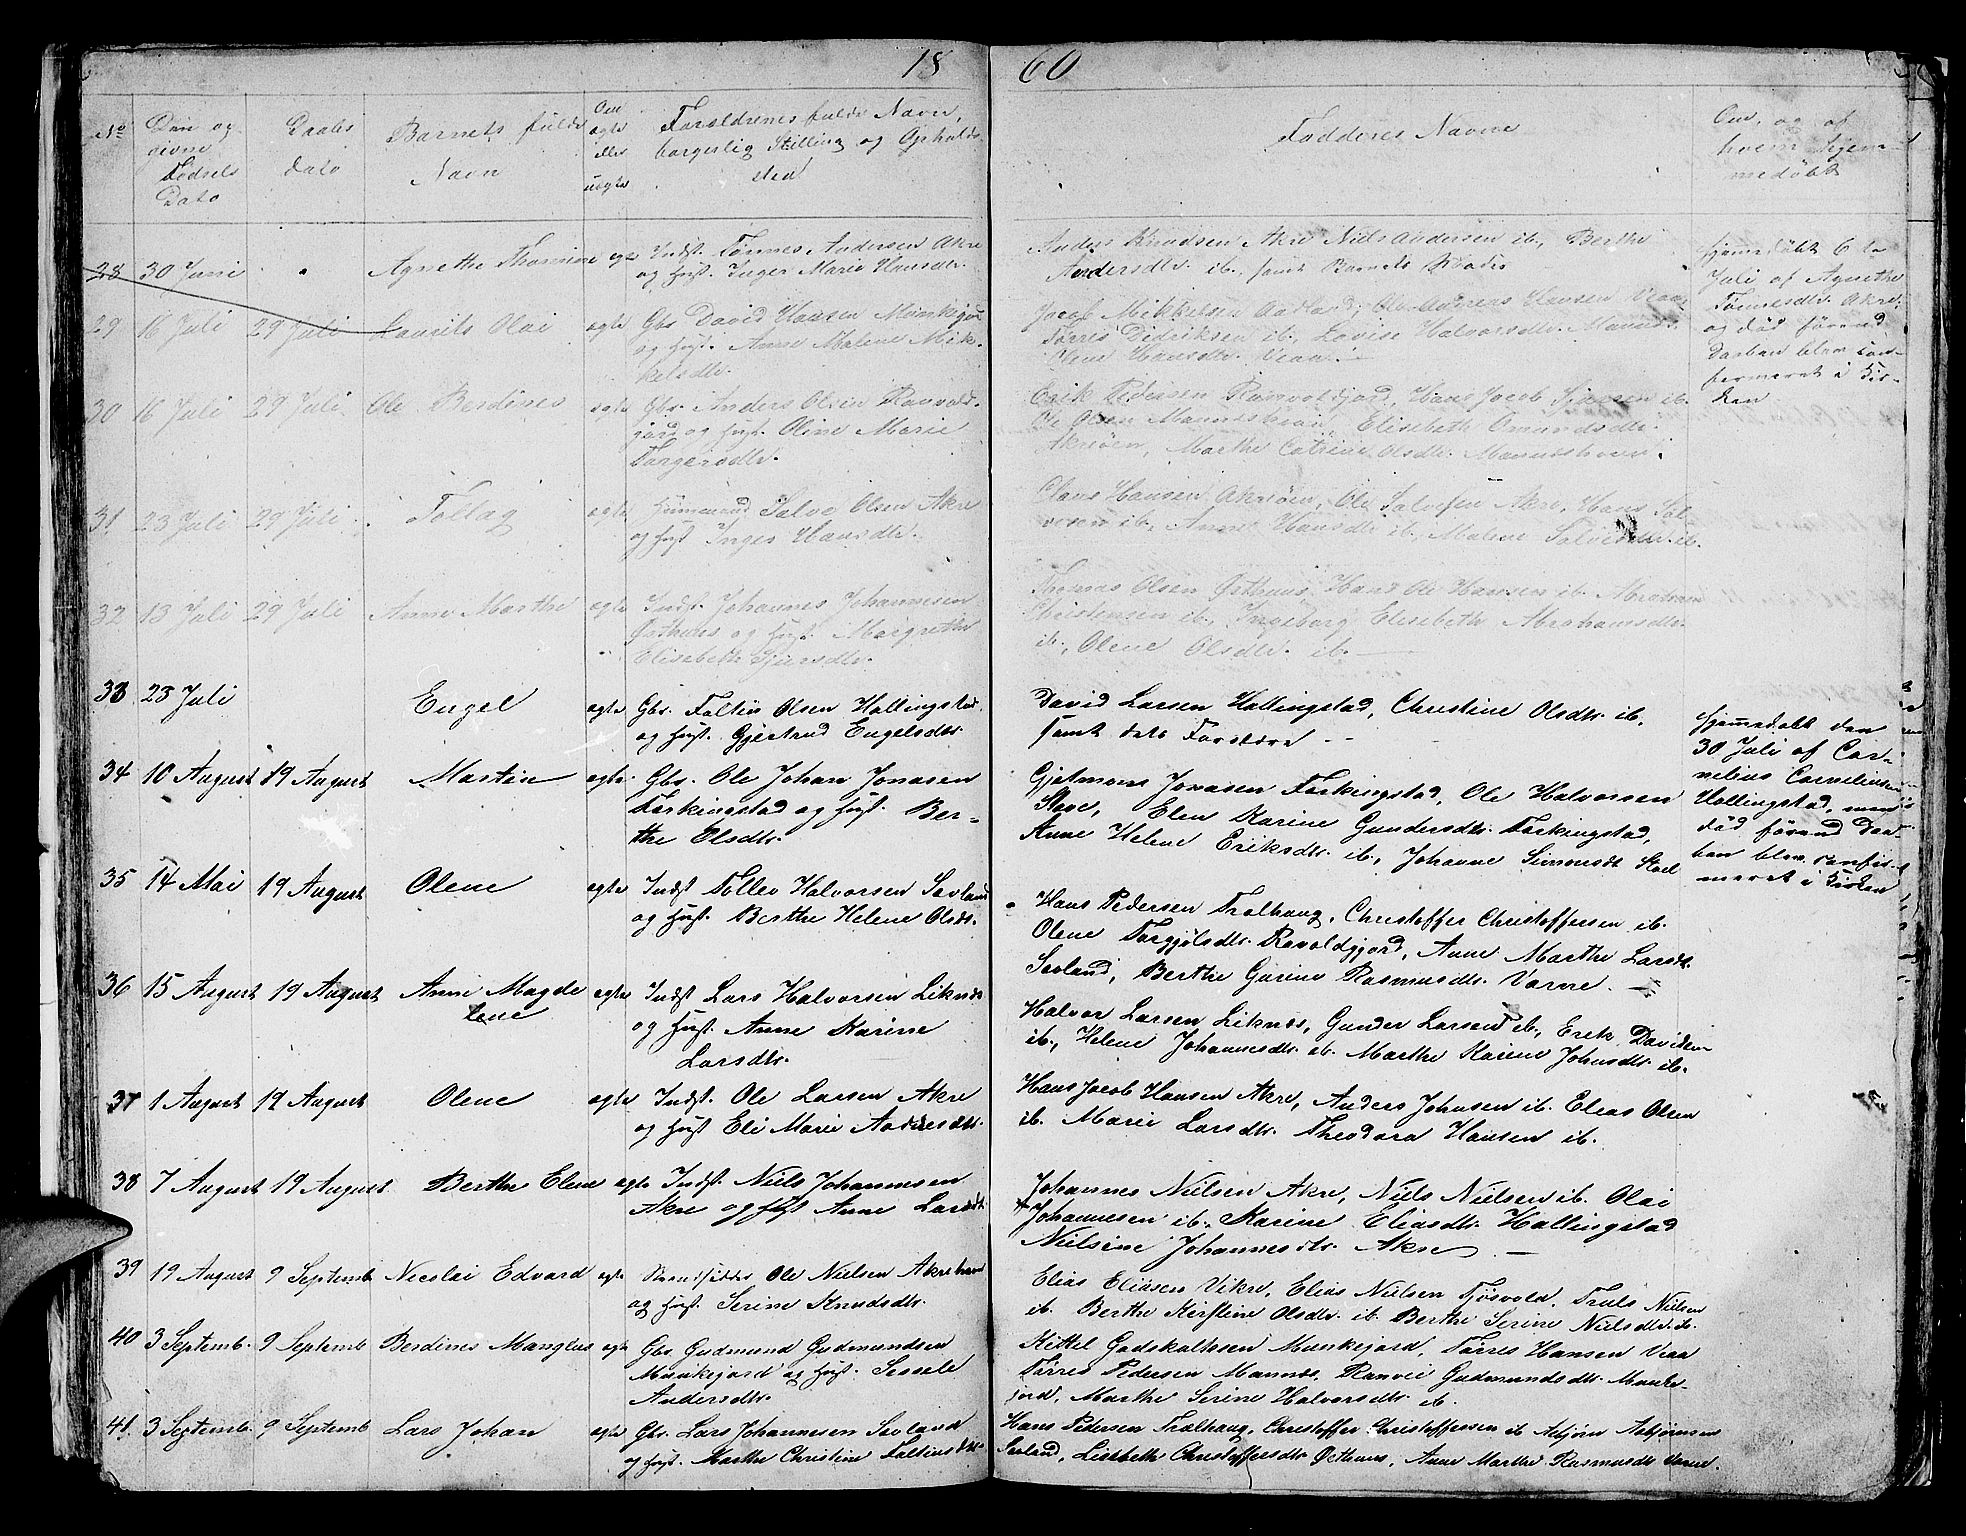 18 60
No
Den og
givne
Fødsels
Dato
Daabs
dato
Barnets fulde
Navn
Om
ægte
eller
uægte
Foraldrenes fulde Navn,
borgerlig Stilling og Opholds
sted
Fadderes Navne
Om, og af
hvem hjem-
medøbt
28 30 Juni Agnethe Thomine egte Indst. Tønnes Andersen Akre
og Hust. Inger Marie Hansdtr.
Anders Knudsen Akre Niels Andersen ib., Berthe
Andersdtr. ib. samt Barnets Moder
Hjemmedøbt 6te
Juli af Agnethe
Tønnesdtr. Akre,
og død førend
Daaben blev con-
fermeret i Kir-
ken
29 16 Juli 29 Juli Laurits Olai egte Gbr David Hansen Munkejor
og Hust. Anne Malene Mik-
kelsdtr.
Jacob Mikkelsen Aadland, Ole Andreas Hansen Veaa
Tørres Didriksen ib. Lovise Halvorsdtr. Mannes
Olene Hansdtr. Veaa
30 16 Juli 29 Juli Ole Berdines egte Gbr. Anders Olsen Ravold-
jord og Hust. Oline Marie
Torgersdtr.
Erik Pedersen Ranvoldjord, Hans Jacob ib.
Ole Olsen Munushavn, Elisabeth Omundsdtr.
Akrøen, Marthe Catrine Olsdtr.
31 23 Juli 29 Juli Tollag egte Huusmand Salve Olsen Akre
og Hust Inger Hansdtr.
Claus Hansen Akrøen, Ole Salvesen Akre, Hans Sal-
vesen ib., Anne Hansdtr ib., Malene Salvesdtr. ib.
32 13 Juli 29 Juli Anne Marthe egte Indst. Johannes Johannesen
Østhuus og Hust. Margrethe
Elisabeth Sjursdtr.
Thomas Olsen Østhuus, Hans Ole Hansen ib. Abraham
Christensen ib., Ingeborg Elisabeth Abrahamsdtr.
ib., Olene Olsdtr. ib.
33 23 Juli Engel egte Gbr. Foltin Olsen Hallingstad,
og Hust. Gjertrud Engelsdtr.
David Larsen Hallingstad, Christine Olsdtr. ib.
samt dets Forældre
Hjemmedøbt den
30 Juli af Cor-
nelius Corneliusen
Hallingstad, men
død førend Daa-
ben blev confir-
meret i Kirken
34 10 August 19 August Martin egte Gbr. Ole Johan Jonasen
Førkingstad og Hust. Ber-
the Olsdtr.
Gjetmons Jonasen Førkingstad, Ole Halvorsen
Steve, Elen Karine Gundersdtr. Førkingstad,
Anne Helene Eriksdtr. ib., Johanne Simonsdt Stoel
35 14 Mai 19 August Olene egte Indst Tollev Halvorsen Sevland
og Hust. Berthe Helene Olsdt.
Hans Pedersen Trælhaug, Christoffer Christoffersen ib.
Olene Torgjølsdtr. Ravoldgjord, Anne Marthe Larsdt.
Sevland, Berthe Gurine Rasmusdtr. Varne.
36 15 August 19 August Anne Magde
lene egte Indst Lars Halvorsen Liknes
og Hust. Anne Karine
Larsdtr.
Halvor Larsen Liknes, Gunder Larsen ib., Erik Davidsen
ib., Helene Johannesdtr. ib. Marthe Karine Johnsdtr. ib.
37 1 August 19 August Olene egte Indst. Ole Larsen Akre
og Hust Eli Marie Andersdtr.
Hans Jacob Hansen Akre, Anders Johnsen ib. Elias Olsen
ib. Marie Larsdtr. Theodora Hansen ib.
38 7 August 19 August Berthe Elene egte Indst. Niels Johannesen
Akre og Hust Anne Larsdt.
Johannes Nielsen Akre, Niels Nielsen ib. Olai
Johannesen ib., Karine Eliasdtr. Hallingstad
Nielsine Johannesdtr. Akre
39 19 August 9 Septemb Nicolai Edvard egte Strandsidder Ole Nielsen Akrehavn
og Hust. Serine Knudsdtr.
Elias Eliasen Vikre, Elias Nielsen Tjøsvold, Truls Nielsen
ib. Berthe Kirstine Olsdtr. ib. Berthe Serine Nielsdtr. ib.
40 3 Septemb. 9 Septemb Berdines Manglus egte Gbr Gudmund Gudmundsen
Munkejord og Hust. Sessele
Andersdtr.
Kittel Godskalksen Munkejord, Tørres Hansen Veaa
Tørres Pedersen Mannes, Ranvei Gudmundsdtr. Munke-
jord, Marthe Serine Halvorsdtr. ib.
41. 3 Septemb. 9 Septemb Lars Johan egte Gbr. Lars Johannesen Sevland
og Hust. Marthe Christine Foltinsdtr.
Hans Pedersen Trælhaug, Christoffer Christoffersen ib Asbjørn Asbjørnsen
Sevland, Lisebeth Christoffersdtr Østhuus, Anne Marthe Rasmusdtr Varne.